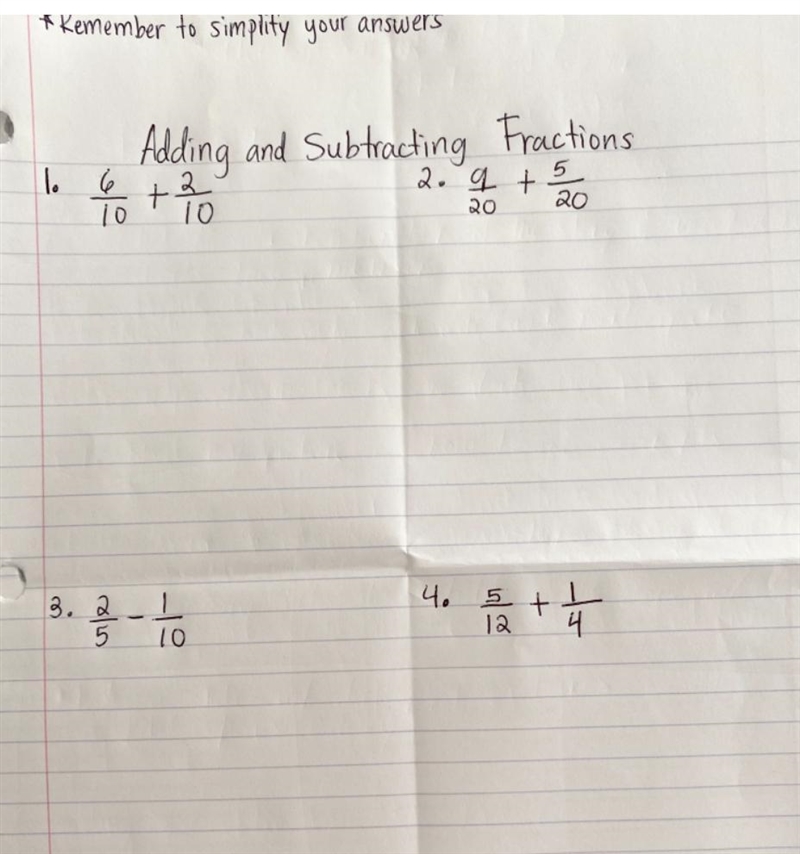 *Remember to simplify your answers
Adding and Subtracting Fractions
1. 6/10 + 2/10
2. 9/20 + 5/20
3. 2/5 - 1/10
4. 5/12 + 1/4